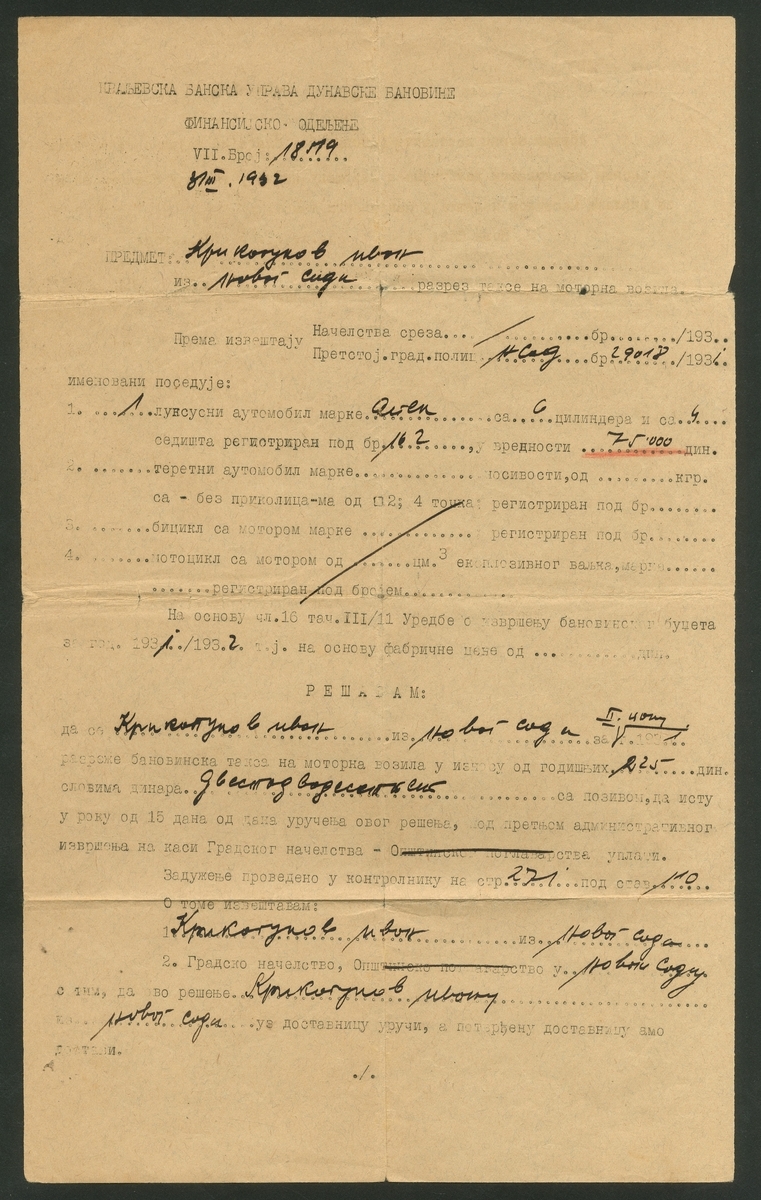 КРАЉЕВСКА БАНСКА УПРАВА ДУНАВСКЕ БАНОВИНЕ
ФИНАНСИЈСКО ОДЕЉЕЊЕ
VII. Број:
III. 1932
ПРЕДМЕТ: Крикотунов Иван
из Новог Сада разрез таксе на моторна возила.
Према извештају Начелства среза.... бр......../193..
Претстој.град.полиц. Н Сад бр 29018/1931
именовани поседује:
1. 1 луксусни автомобил марке са 6 цилиндера и са 4
седишта регистриран под бр 162, у вредности 75.000 дин.
2. теретни аутомобил марке носивости, од кгр.
са - без приколица-ма од 2; 4 точка регистриран под бр.
3. бицикл са мотором марке регистриран под бр.
4. мотоцикл са мотором од см.3 експлозивног ваљка, марка
регистриран под бројем
На основу чл.16 тач.III/11 Уредбе о извршењу бановинског буџета
за год. 1931/1932. т.ј. на основу фабричне цене од дин.
РЕШАВАМ:
да се Крикотунов Иван из Новог Сада за II. 1931
разреже бановинска такса на моторна возила у износу од годишњих 225 дин.
словима динара двестодвадесетпет са позивом, да исту
у року од 15 дана од дана уручења овог решења, под претњом административног
извршења на каси Градског начелства - Општинског поглаварства уплати.
Задужење проведено у контролнику на стр. 271 под став. 110
О томе извештавам:
1. Крикотунов Иван из Новог Сада
2. Градско начелство, Општинско поглаварство у Новом Саду
с тим, да ово решење Крикотунов Ивану
из Новог Сада уз доставницу уручи, а потврђену доставницу амо
достави.
./.